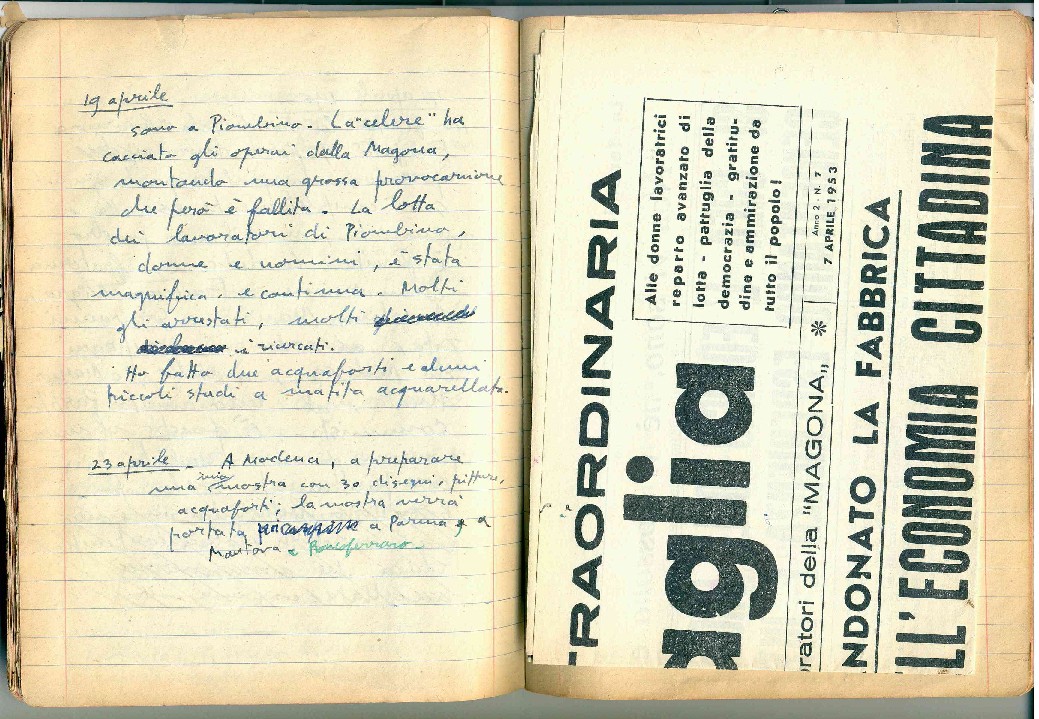 19 aprile
sono a Piombino. La "celere" ha
cacciato gli operai dalla Magona,
montando una grossa provocazione
che però è fallita. La lotta
dei lavoratori di Piombino,
donne e uomini, è stata
magnifica. e continua. Molti
gli arrestati, molti
i ricercati.
Ho fatto due acqueforti e alcuni
piccoli studi a matita acquarellata.
23 aprile - A Modena, a preparare
una mia mostra con 30 disegni, pitture,
acqueforti; la mostra verrà
portata a Parma, a
Mantova e Roncoferraro.
TRAORDINARIA
aglia
Alle donne lavoratrici
reparto avanzato di
lotta - pattuglia della
democrazia - gratitu-
dine e ammirazione da
tutto il popolo!
oratori della "MAGONA„ *
Anno 2 N. 7
7 APRILE 1953
NDONATO LA FABBRICA
LL'ECONOMIA CITTADINA